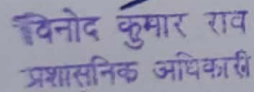 विनोद कुमार राव
प्रशासनिक अधिकारी